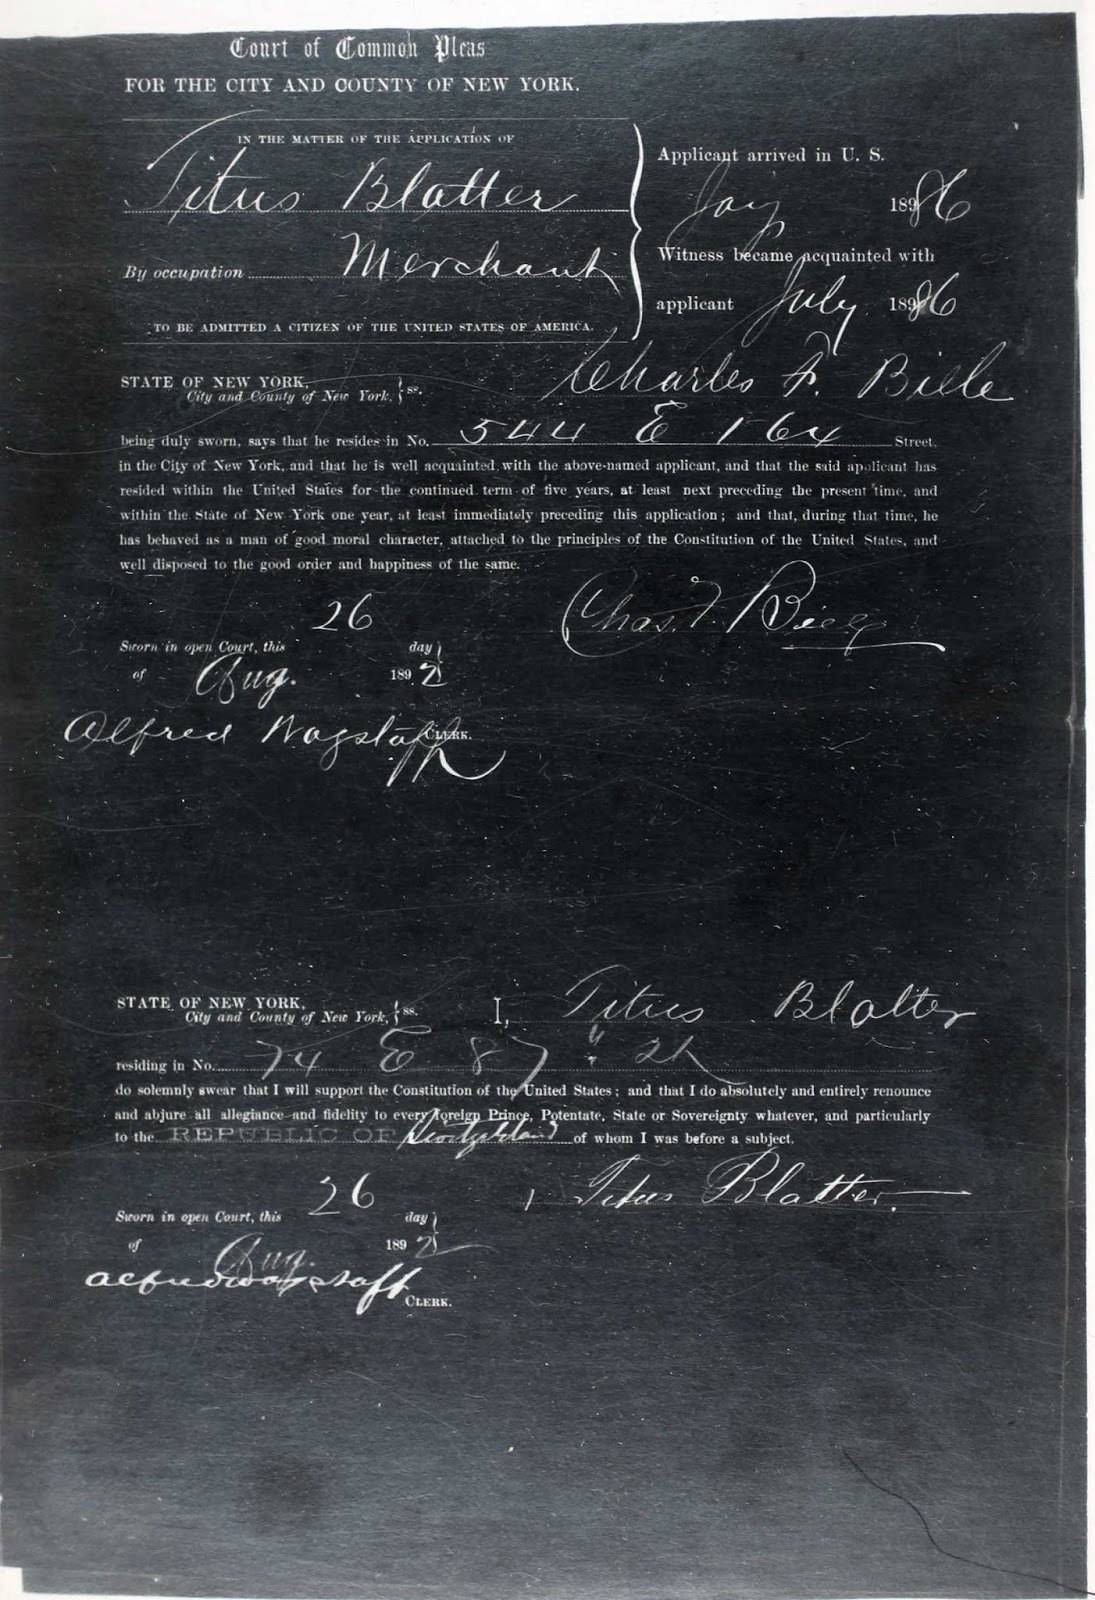 Court of Common Pleas
FOR THE CITY AND COUNTY OF NEW YORK.
IN THE MATTER OF THE APPLICATION OF
Titus Blatter
By occupation Merchant
TO BE ADMITTED A CITIZEN OF THE UNITED STATES OF AMERICA.
Applicant arrived in U. S.
1886
Witness became acquainted with
applicant July 1886
STATE OF NEW YORK,
City and County of New York, } ss.
Charles F.
being duly sworn, says that he resides in No. 544 E 164 Street.
in the City of New York, and that he is well acquainted with the above-named applicant, and that the said applicant has
resided within the United States for the continued term of five years, at least next preceding the present time, and
within the State of New York one year, at least immediately preceding this application; and that, during that time, he
has behaved as a man of good moral character, attached to the principles of the Constitution of the United States, and
well disposed to the good order and happiness of the same.
Chas. F.
Sworn in open Court, this 26 day
of Aug. 1892
Alfred Wagstaff CLERK.
STATE OF NEW YORK,
City and County of New York, } ss.
I, Titus Blatter
residing in No. 74 E 87
do solemnly swear that I will support the Constitution of the United States; and that I do absolutely and entirely renounce
and abjure all allegiance and fidelity to every foreign Prince, Potentate, State or Sovereignty whatever, and particularly
to the REPUBLIC OF Switzerland of whom I was before a subject.
Titus Blatter.
Sworn in open Court, this 26 day
of Aug. 1892
Alfred Wagstaff
CLERK.